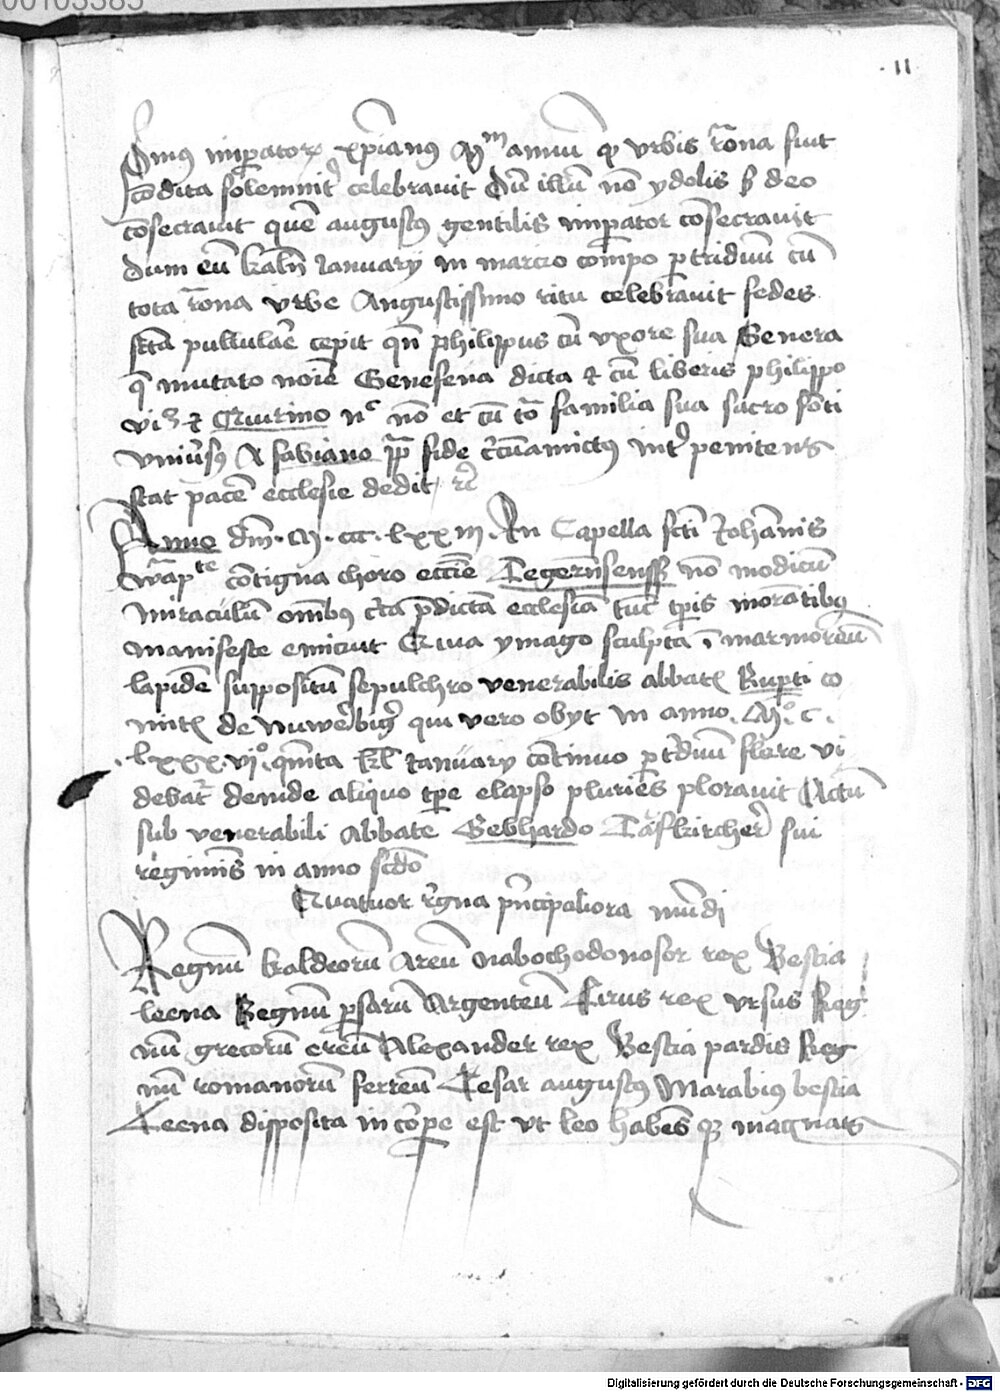 00103385
11
imperator xpianus annum urbis Roma fuit
condita solemnit celebravit Dum illum non ydolis sed deo
consecravit quem augustus gentilis imperator consecravit
dum eum kalen Januarij in marcio compo per triduum cum
tota Roma urbe Angustissimo ritu celebravit sedes
pullulare cepit philippus cum uxore sua Genera
mutato noie Genesena dicta et cum liberis philippo
et Quirino non et cum familia sua sacro fonti
fabiano fide int penitens
stat pacem ecclesie dedit etc
Anno dm M ccc lxx iij In Capella scti Johannis
contigua choro eccie Tegernsenss non modicum
miraculum omibus predictam ecclesiam tunc tpis morantibus
manifeste emicuit Quia ymago sculpta marmoreum
lapidem suppositum sepulchro venerabilis abbatis Ruperti co
mitis de qui vero obyt in anno Mo c
lxxx vjo quinta kl Januarij continuo per triduum flere vi
debat deinde aliquo tpe elapso pluries ploravit Actum
sub venerabili Abbate Gebhardo sui
regiminis in anno scdo
Quatuor regna principaliora mundi
Regnum kaldeorum Areum Nabochodonosor rex Bestia
leena Regnum persarum Argenteum Cirus rex ursus Reg
num grecorum ereum Alexander rex Bestia pardis Reg
num romanorum ferreum Cesar augustus Marabius bestia
Leena disposita in corpe est ut leo habens magnais
Digitalisierung gefördert durch die Deutsche Forschungsgemeinschaft - DFG